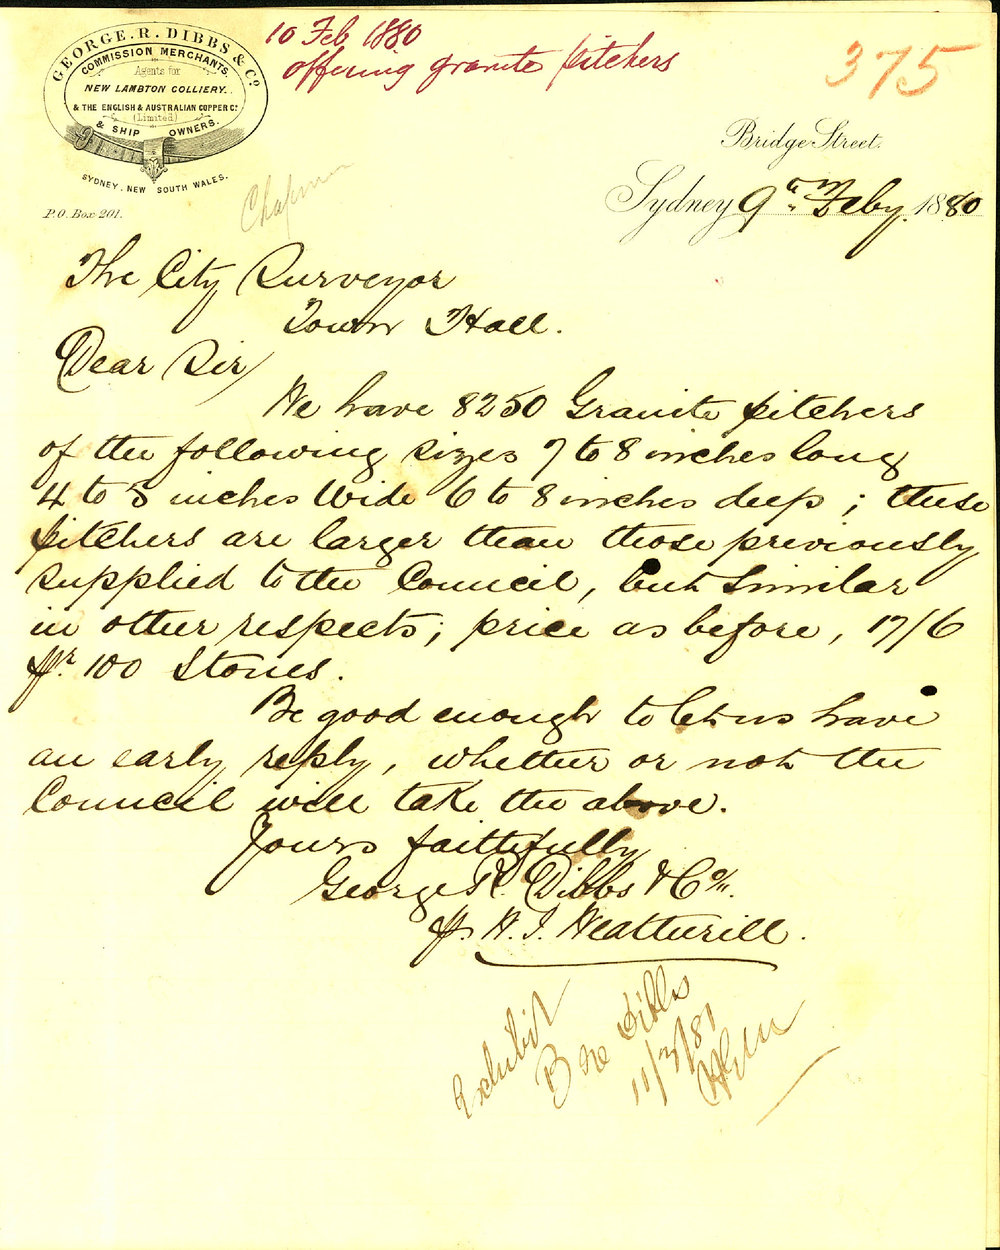 GEORGE. R. DIBBS & Co.
COMMISSION MERCHANTS.
Agents for
NEW LAMBTON COLLIERY.
& THE ENGLISH & AUSTRALIAN COPPER Co.
(Limited)
& SHIP OWNERS.
SYDNEY, NEW SOUTH WALES.
P.O. Box 201.
10 Feb 1880
offering granite pitchers
375
Chapman
Bridge Street.
Sydney 9th Feby. 1880
The City Surveyor
Town Hall.
Dear Sir
We have 8250 Granite pitchers
of the following sizes 7 to 8 inches long
4 to 5 inches wide 6 to 8 inches deep; these
pitchers are larger than those previously
supplied to the Council, but similar
in other respects; price as before, 17/6
pr. 100 Stones.
Be good enough to let us have
an early reply, whether or not the
Council will take the above.
Yours faithfully
George R. Dibbs & Co.
p. W. J. Weatherill.
Exhibit
B re Dibbs
11/3/81